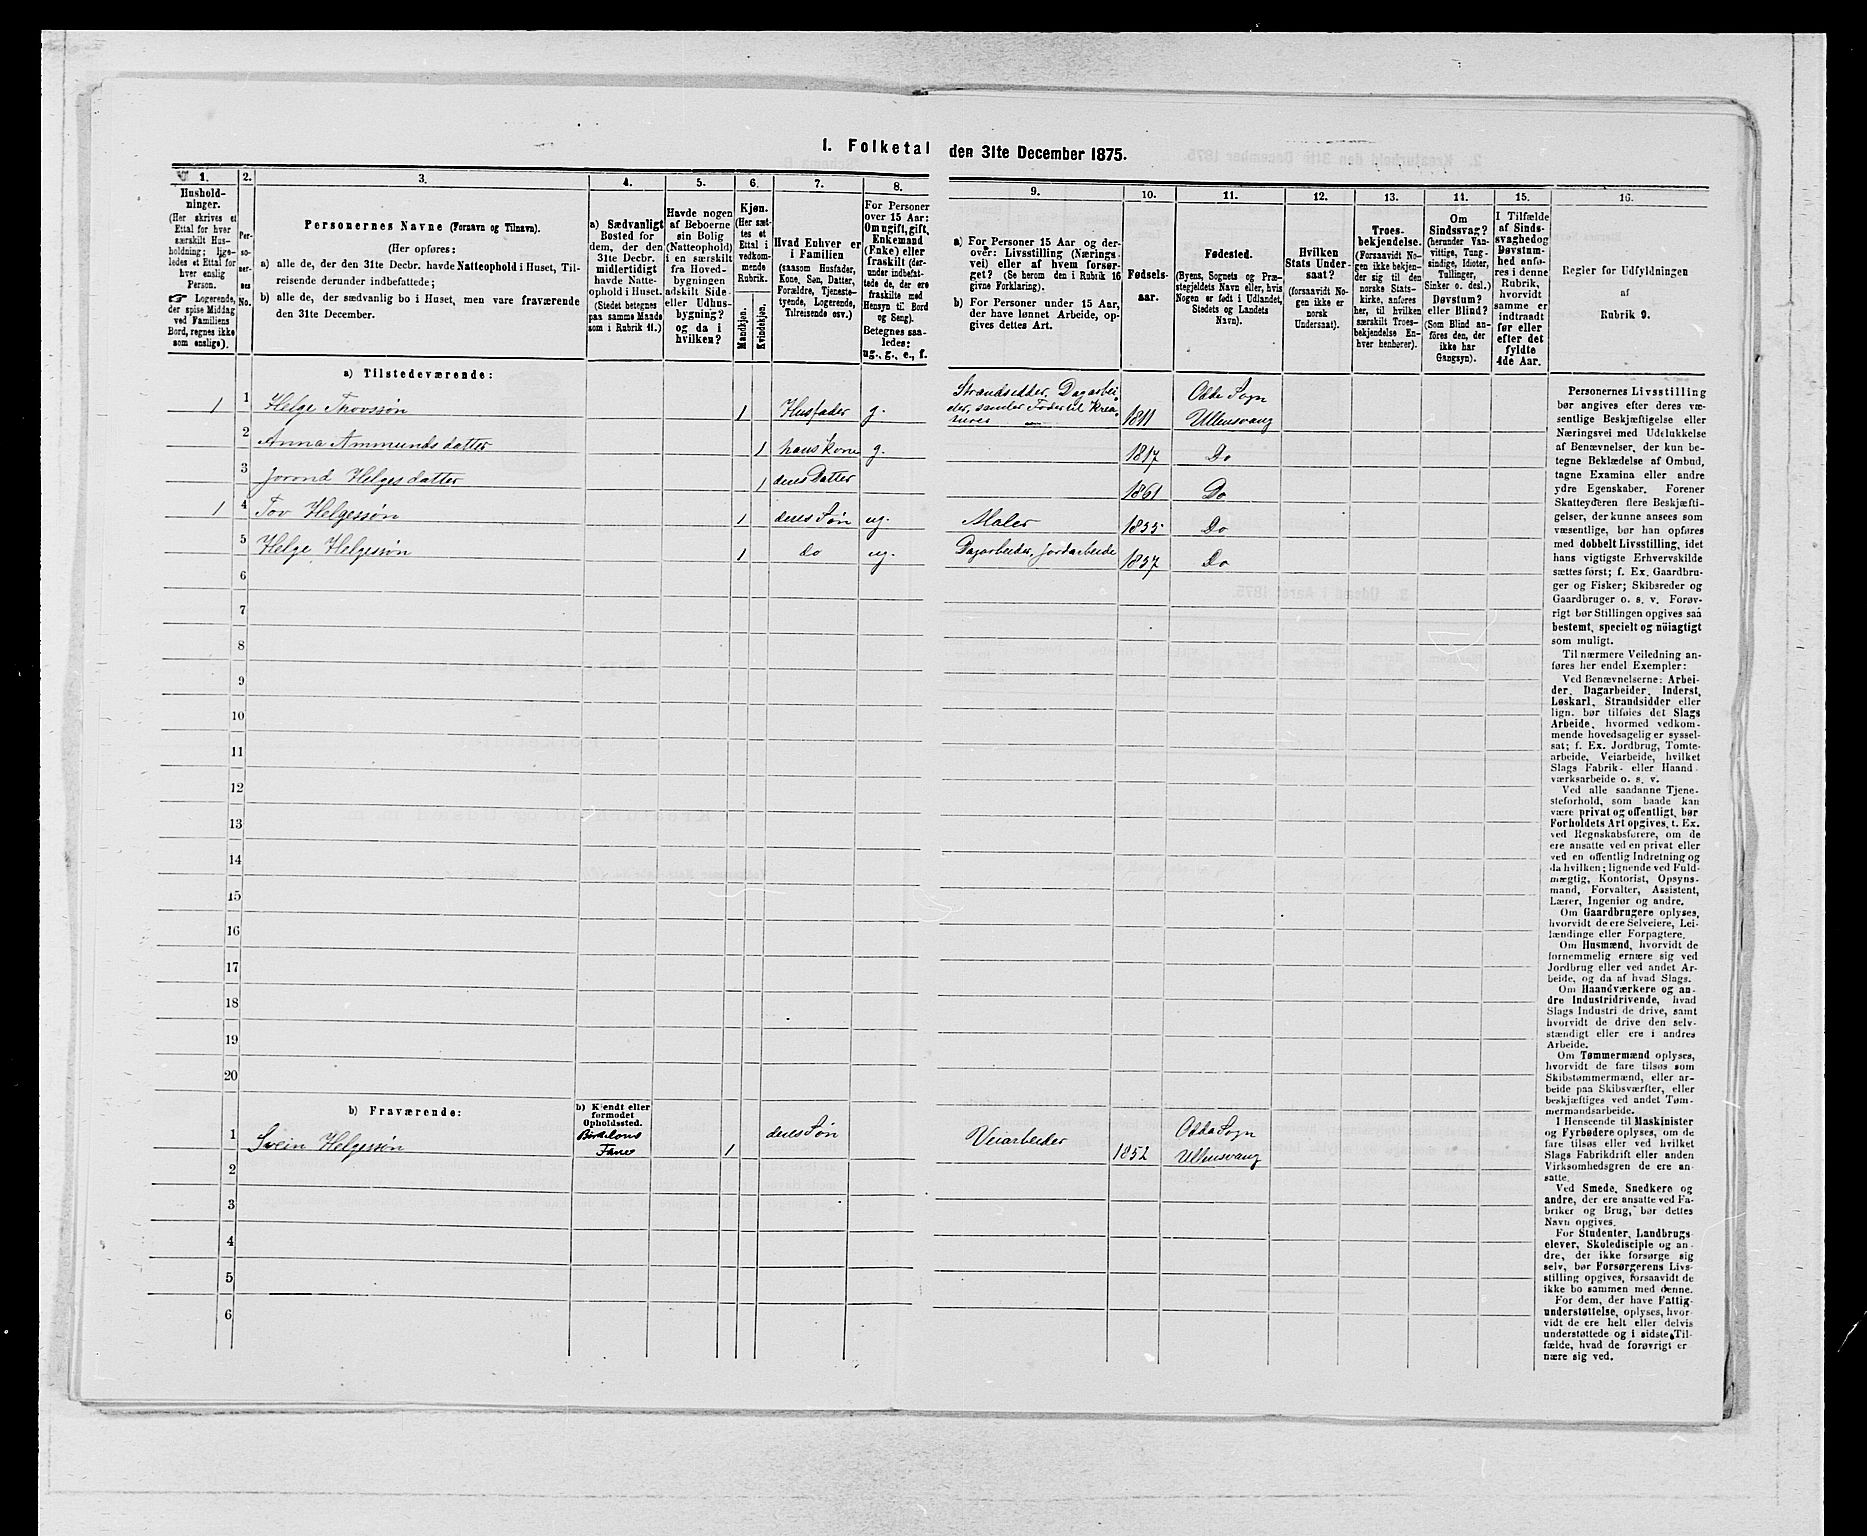 1. Folketal den 31te December 1875.
1. 2. 3. 4. 5. 6. 7. 8. 9. 10. 11. 12. 13. 14. 15. 16.
Hushold-
ninger.
(Her skrives et
Ettal for hver
særskilt Hus-
holdning; lige-
ledes et Ettal for
hver enslig
Person.
☞ Logerende,
der spise Middag
ved Familiens
Bord, regnes ikke
som enslige).
Per-
so-
ner-
nes
No.
Personernes Navne (Fornavn og Tilnavn).
(Her opføres:
a) alle de, der den 31te Decbr. havde Natteophold i Huset, Til-
reisende derunder indbefattede;
b) alle de, der sædvanlig bo i Huset, men vare fraværende
den 31te December.
a) Sædvanligt
Bosted for
dem, der den
31te Decbr.
midlertidigt
havde Natte-
ophold i Huset.
(Stedet betegnes
paa samme Maade
som i Rubrik 11.)
Havde nogen
af Beboerne
sin Bolig
(Natteophold)
i en særskilt
fra Hoved-
bygningen
adskilt Side-
eller Udhus-
bygning?
og da i
hvilken?
Kjøn.
(Her sæt-
tes et
Ettal i
vedkom-
mende
Rubrik.
Mandkjøn.
Kvindekjøn.
Hvad Enhver er
i Familien
(saasom Husfader,
Kone, Søn, Datter,
Forældre, Tjeneste-
tyende, Logerende,
Tilreisende osv.)
For Personer
over 15 Aar:
Om ugift, gift,
Enkemand
(Enke) eller
fraskilt (der-
under indbefat-
tede de, der ere
fraskilte med
Hensyn til Bord
og Seng).
Betegnes saa-
ledes:
ug., g., e., f.
a) For Personer 15 Aar og der-
over: Livsstilling (Nærings-
vei) eller af hvem forsør-
get? (Se herom den i Rubrik 16
givne Forklaring).
b) For Personer under 15 Aar,
der have lønnet Arbeide, op-
gives dettes Art.
Fødsels-
aar.
Fødested.
(Byens, Sognets og Præ-
stegjeldets Navn eller, hvis
Nogen er født i Udlandet,
Stedets og Landets
Navn).
Hvilken
Stats Under-
saat?
(forsaavidt No-
gen ikke er
norsk
Undersaat).
Troes-
bekjendelse.
(Forsaavidt No-
gen ikke bekjen-
der sig til den
norske Stats-
kirke, anføres
her, til hvilken
særskilt Troes-
bekjendelse En-
hver henhører).
Om
Sindssvag?
(herunder Van-
vittige, Tung-
sindige, Idioter,
Tullinger,
Sinker o. desl.)
Døvstum?
eller Blind?
(Som Blind an-
føres den, der
ikke har
Gangsyn).
I Tilfælde
af Sinds-
svaghed og
Døvstum-
hed anfø-
res i denne
Rubrik,
hvorvidt
samme er
indtraadt
før eller
efter det
fyldte
4de Aar.
Regler for Udfyldningen
af
Rubrik 9.
a) Tilstedeværende:
1 1 Helge Thovssøn 1 Husfader g. Strandsidder, Dagarbei-
der, samler Foder til Krea-
turer 1811 Odde Sogn
Ullensvang
2 Anna Ammunds datter 1 hans Kone g. 1817 Do
3 Jorond Helges datter 1 deres Datter 1861 Do
1 4 Tov Helgessøn 1 deres Søn ug. Maler 1855 Do
5 Helge Helgessøn 1 Do ug. Dagarbeider, Jordarbeide 1857 Do
6
7
8
9
10
11
12
13
14
15
16
17
18
19
20
b) Fraværende:
b) Kjendt eller
formodet
Opholdssted.
1 Svein Helgessøn Fane 1 deres Søn Veiarbeider 1852 Odda Sogn
Ullensvang
2
3
4
5
6
Personernes Livsstilling
bør angives efter deres væ-
sentlige Beskjæftigelse eller
Næringsvei med Udelukkelse
af Benævnelser, der kun be-
tegne Beklædelse af Ombud,
tagne Examina eller andre
ydre Egenskaber. Forener
Skatteyderen flere Beskjæfti-
gelser, der kunne ansees som
væsentlige, bør han opføres
med dobbelt Livsstilling, idet
hans vigtigste Erhvervskilde
sættes først; f. Ex. Gaardbru-
ger og Fisker; Skibsreder og
Gaardbruger o. s. v. Forøv-
rigt bør Stillingen opgives saa
bestemt, specielt og nöiagtigt
som muligt.
Til nærmere Veiledning an-
føres her endel Exempler:
Ved Benævnelserne: Arbei-
der, Dagarbeider, Inderst,
Løskarl, Strandsidder eller
lign. bør tilføies det Slags
Arbeide, hvormed vedkom-
mende hovedsagelig er syssel-
sat; f. Ex. Jordbrug, Tomte-
arbeide, Veiarbeide, hvilket
Slags Fabrik- eller Haand-
værksarbeide o. s. v.
Ved alle saadanne Tjene-
steforhold, som baade kan
være privat og offentligt, bør
Forholdets Art opgives, t. Ex.
ved Regnskabsførere, om de
ere ansatte ved en privat eller
ved en offentlig Indretning og
da hvilken; lignende ved Fuld-
mægtig, Kontorist, Opsyns-
mand, Forvalter, Assistent,
Lærer, Ingeniør og andre.
Om Gaardbrugere oplyses,
hvorvidt de ere Selveiere, Lei-
lændinge eller Forpagtere.
Om Husmænd, hvorvidt de
fornemmelig ernære sig ved
Jordbrug eller ved andet Ar-
beide, og da af hvad Slags.
Om Haandværkere og an-
dre Industridrivende, hvad
Slags Industri de drive, samt
hvorvidt de drive den selv-
stændigt eller ere i andres
Arbeide.
Om Tømmermænd oplyses,
hvorvidt de fare tilsøs som
Skibstømmermænd, eller ar-
beide paa Skibsværfter, eller
beskjæftiges ved andet Tøm-
mermandsarbeide.
I Henseende til Maskinister
og Fyrbødere oplyses, om de
fare tilsøs eller ved hvilket
Slags Fabrikdrift eller anden
Virksomhedsgren de ere an-
satte.
Ved Smede, Snedkere og
andre, der ere ansatte ved Fa-
briker og Brug, bør dettes
Navn opgives.
For Studenter, Landbrugs-
elever, Skoledisciple og an-
dre, der ikke forsørge sig
selv, bør Forsørgerens Livs-
stilling opgives, forsaavidt de
ikke bo sammen med denne.
For dem, der have Fattig-
understøttelse, oplyses, hvor-
vidt de ere helt eller delvis
understøttede og i sidste Til-
fælde, hvad de forøvrigt er
nære sig ved.